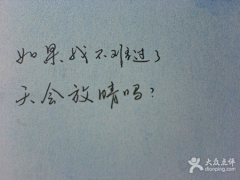 如果、我不难过了
天会放晴吗?
大众点评
dianping.com